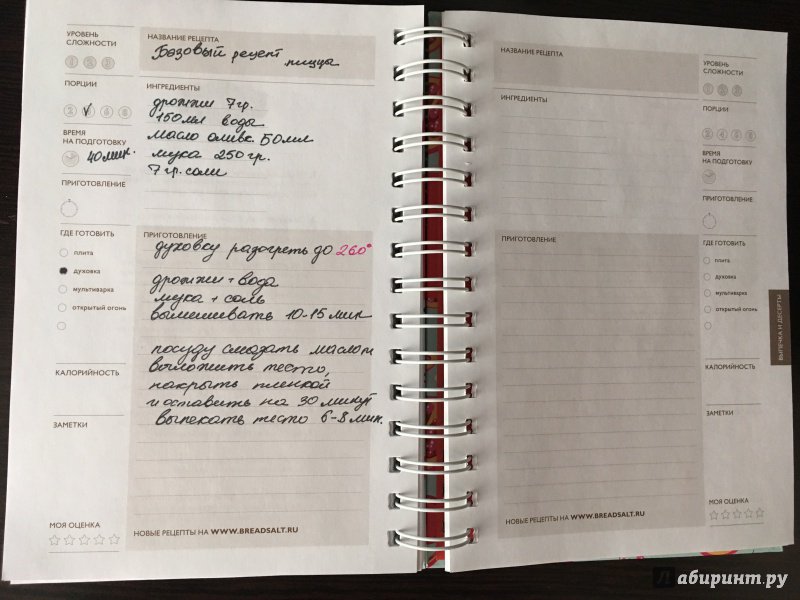 УРОВЕНЬ
СЛОЖНОСТИ
1 2 3
НАЗВАНИЕ РЕЦЕПТА
Базовый рецепт
пиццы
ПОРЦИИ
2 4 6 8
ИНГРЕДИЕНТЫ
дрожжи 7гр.
150мл воды
масло оливк. 50мл
мука 250гр.
7гр. соли
ВРЕМЯ
НА ПОДГОТОВКУ
40мин.
ПРИГОТОВЛЕНИЕ
ГДЕ ГОТОВИТЬ
плита
духовка
мультиварка
открытый огонь
ПРИГОТОВЛЕНИЕ
духовку разогреть до 260°
дрожжи + вода
мука + соль
вымешивать 10-15 мин
посуду смазать маслом
выложить тесто,
накрыть пленкой
и оставить на 30 минут
выпекать тесто 6-8 мин.
КАЛОРИЙНОСТЬ
ЗАМЕТКИ
МОЯ ОЦЕНКА
НОВЫЕ РЕЦЕПТЫ НА WWW.BREADSALT.RU
НАЗВАНИЕ РЕЦЕПТА
УРОВЕНЬ
СЛОЖНОСТИ
1 2 3
ИНГРЕДИЕНТЫ
ПОРЦИИ
2 4 6 8
ВРЕМЯ
НА ПОДГОТОВКУ
ПРИГОТОВЛЕНИЕ
ПРИГОТОВЛЕНИЕ
ГДЕ ГОТОВИТЬ
плита
духовка
мультиварка
открытый огонь
ВЫПЕЧКА И ДЕСЕРТЫ
КАЛОРИЙНОСТЬ
ЗАМЕТКИ
МОЯ ОЦЕНКА
НОВЫЕ РЕЦЕПТЫ НА WWW.BREADSALT.RU
Лабиринт.ру